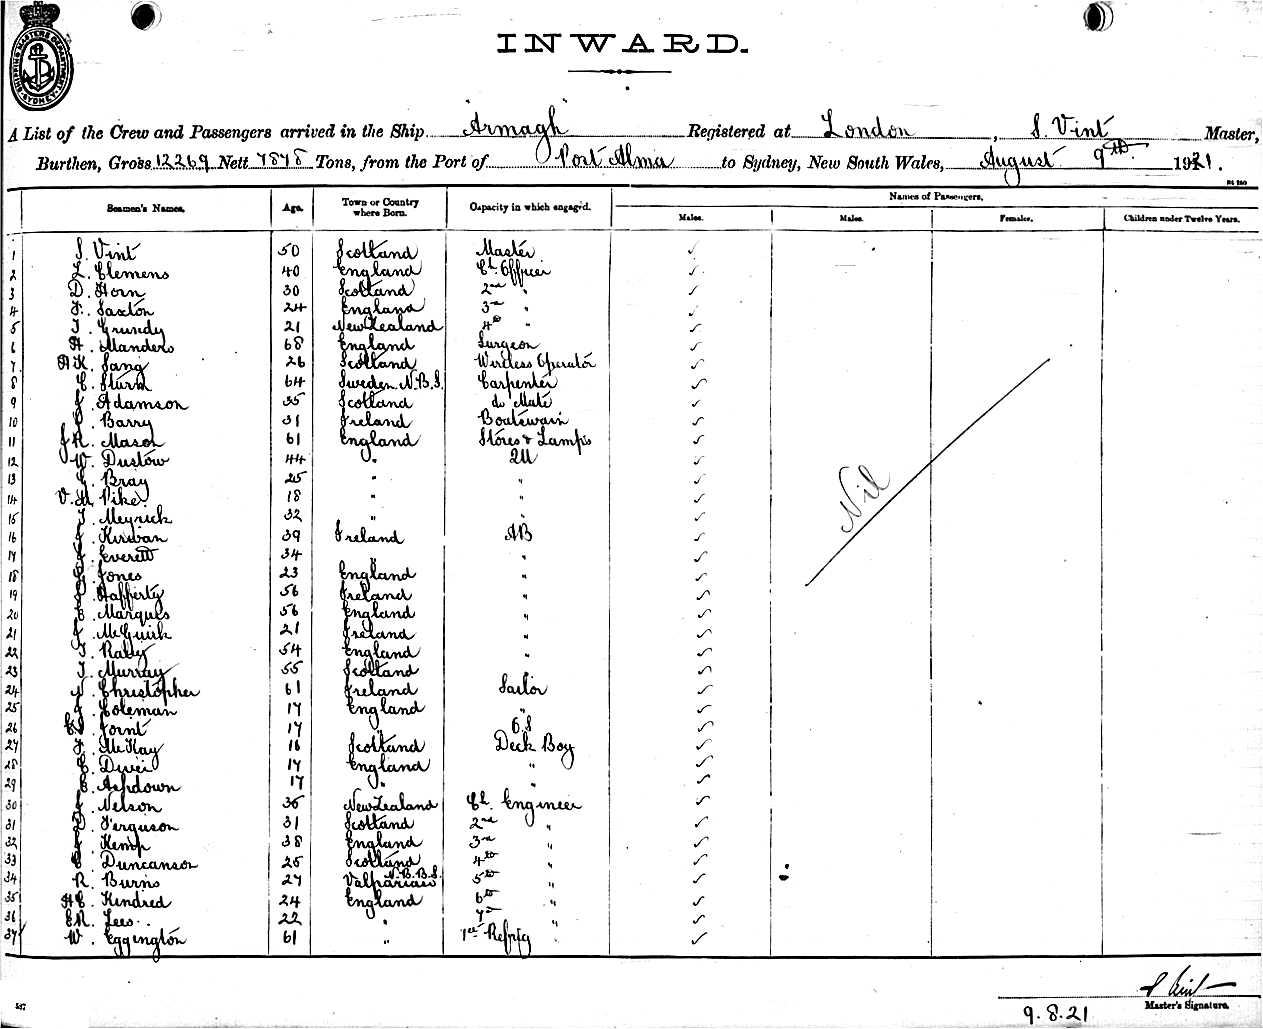 SHIPPING MASTERS DEPARTMENT
SYDNEY
INWARD.
A List of the Crew and Passengers arrived in the Ship "Armagh" Registered at London, S. Vint Master,
Burthen, Gross 12269 Nett 7878 Tons, from the Port of Port Alma to Sydney, New South Wales, August 9th 1921.
Names of Passengers.
Seamen's Names. Age. Town or Country where Born. Capacity in which engag'd. Males. Males. Females. Children under Twelve Years.
1 S. Vint 50 Scotland Master ✓
2 L. Clemens 40 England Ch. Officer ✓
3 D. Horn 30 Scotland 2nd " ✓
4 F. Saxton 24 England 3rd " ✓
5 T. Grundy 21 New Zealand 4th " ✓
6 H. Manders 68 England Surgeon ✓
7 A K. Sang 26 Scotland Wireless Operator ✓
8 C. Sturm 64 Sweden N.B.S. Carpenter ✓
9 J. Adamson 35 Scotland do Mate ✓
10 Barry 31 Ireland Boatswain ✓
11 J R. Mason 61 England Stores & Lamps ✓
12 W. Dustow 44 " QM ✓
13 Bray 25 " " ✓
14 V. M Pike 18 " " ✓
15 T. Meyrick 32 " " ✓
16 J. Kirwan 39 Ireland AB ✓
17 J. Everett 34 " " ✓
18 Jones 23 England " ✓
19 Rafferty 56 Ireland " ✓
20 Marques 56 England " ✓
21 J. McGuirk 21 Ireland " ✓
22 Raby 54 England " ✓
23 T. Murray 55 Scotland " ✓
24 Christopher 61 Ireland Sailor ✓
25 J. Coleman 17 England " ✓
26 Joint 17 " O.S ✓
27 J. McKay 16 Scotland Deck Boy ✓
28 17 England " ✓
29 Ashdown 17 " " ✓
30 J. Nelson 36 New Zealand Ch. Engineer ✓
31 D. Ferguson 31 Scotland 2nd " ✓
32 J. Kemp 38 England 3rd " ✓
33 Duncanson 25 Scotland 4th " ✓
34 R. Burns 27 N.B.B.S. 5th " ✓
35 H C. Kindred 24 England 6th " ✓
36 E R. Lees 22 " 7th " ✓
37 W. Eggington 61 " 1st Refrig " ✓
Nil
S Vint
Master's Signature.
9.8.21